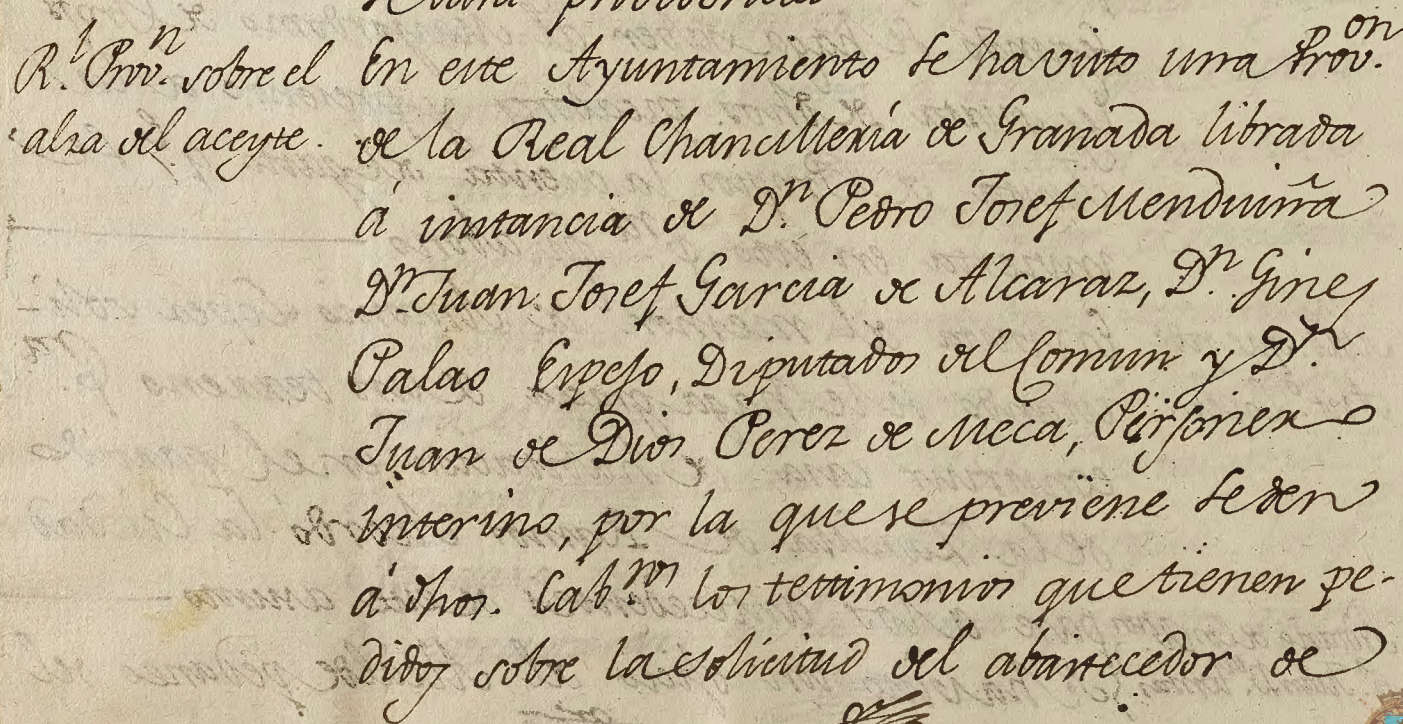 R.l Prov.n sobre el
alza del aceyte.
En este Ayuntamiento se ha visto una Prov.on
de la Real Chancillería de Granada librada
á instancia de D.n Pedro Josef Menduiña
D.n Juan Josef Garcia de Alcaraz, D.n Gines
Palao Espejo, Diputados del Comun y D.n
Juan de Dios Perez de Meca, Personero
interino, por la que se previene se den
á dhos. Cab.ros los testimonios que tienen pe-
didos sobre la solicitud del abastecedor de